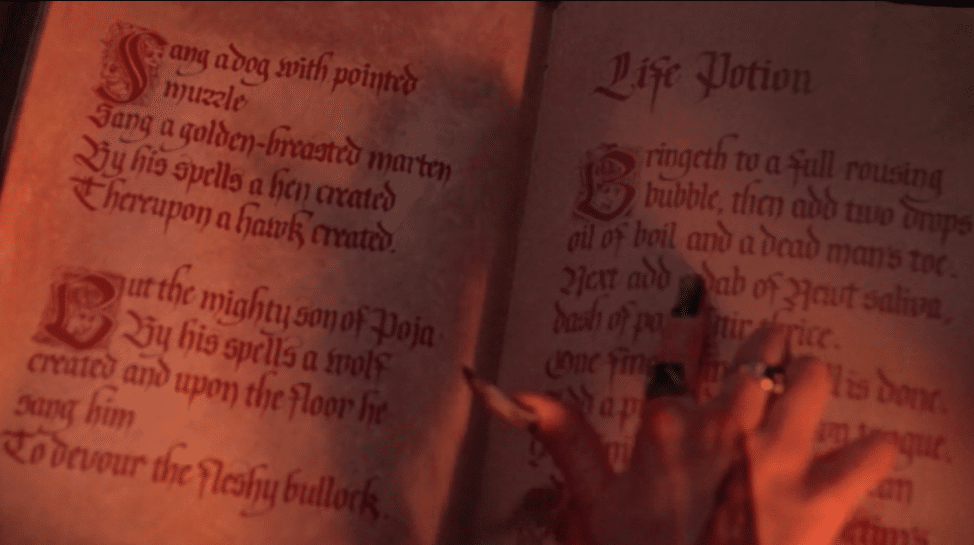 Sang a dog with pointed
muzzle
Sang a golden-breasted marten
By his spells a hen created
Thereupon a hawk created.
But the mighty son of Poja
By his spells a wolf
created and upon the floor he
sang him
To devour the fleshy bullock.
Life Potion
Bringeth to a full rousing
bubble, then add two drops
oil of boil and a dead man's toe.
Next add dab of Newt saliva,
dash of
One is done.
Add a